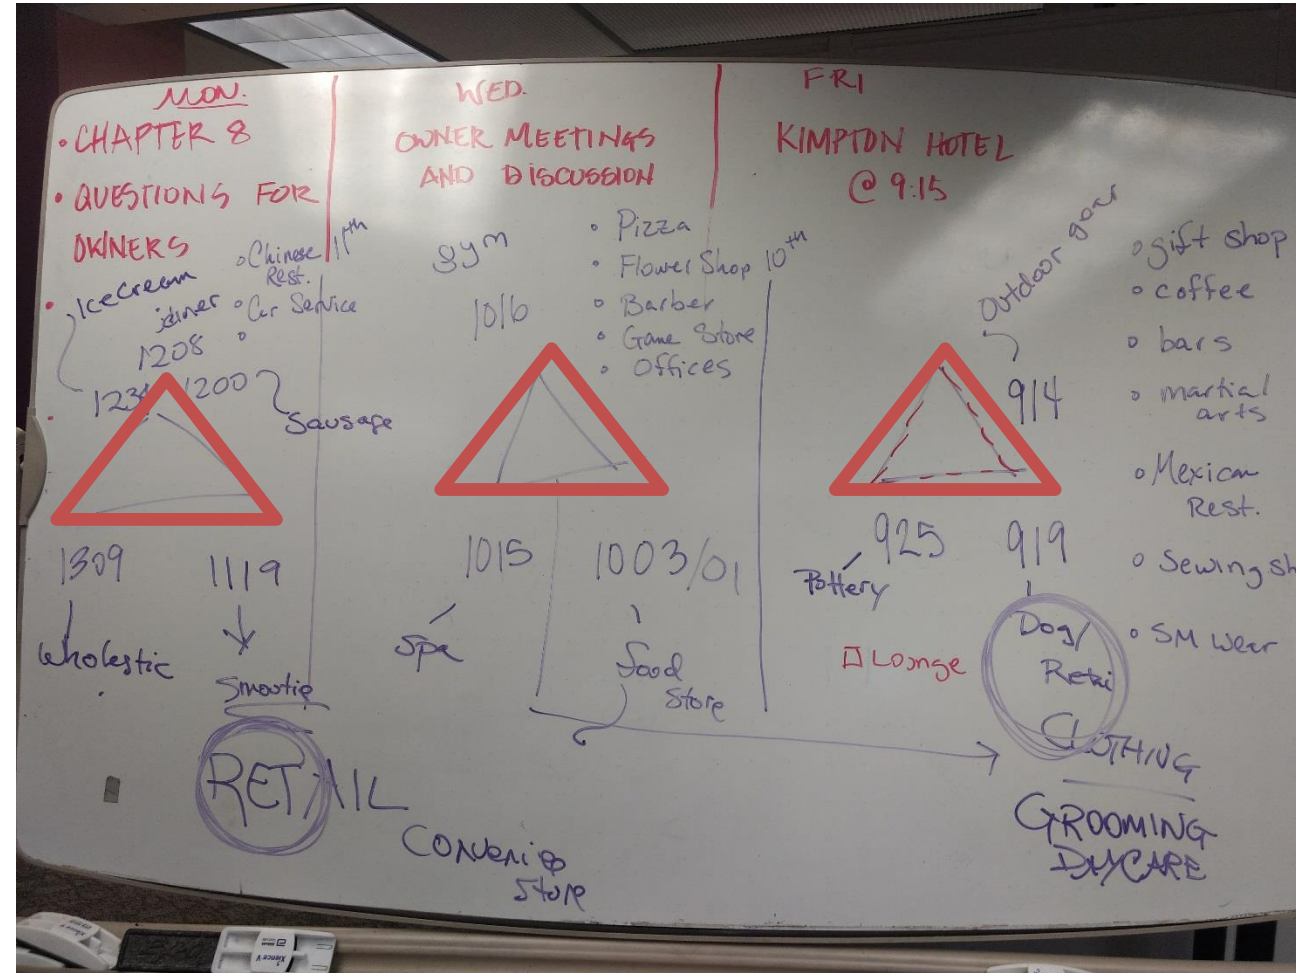 MON.
• CHAPTER 8
• QUESTIONS FOR
OWNERS
WED.
OWNER MEETINGS
AND DISCUSSION
FRI
KIMPTON HOTEL
@ 9:15
• Icecream
diner
1208
1200
Sausage
• Chinese
Rest.
• Car Service
11th
1309
Wholestic
1119
Smootie
RETAIL
gym
1016
• Pizza
• Flower Shop
• Barber
• Game Store
• Offices
10th
1015
Spa
1003/01
food
Store
Convenie
Store
Outdoor gear
914
925
Pottery
919
Dog/
Retai
CLOTHING
GROOMING
DAYCARE
Lounge
• gift shop
• coffee
• bars
• martial
arts
• Mexican
Rest.
• Sewing sh
• SM Wear
Xience V